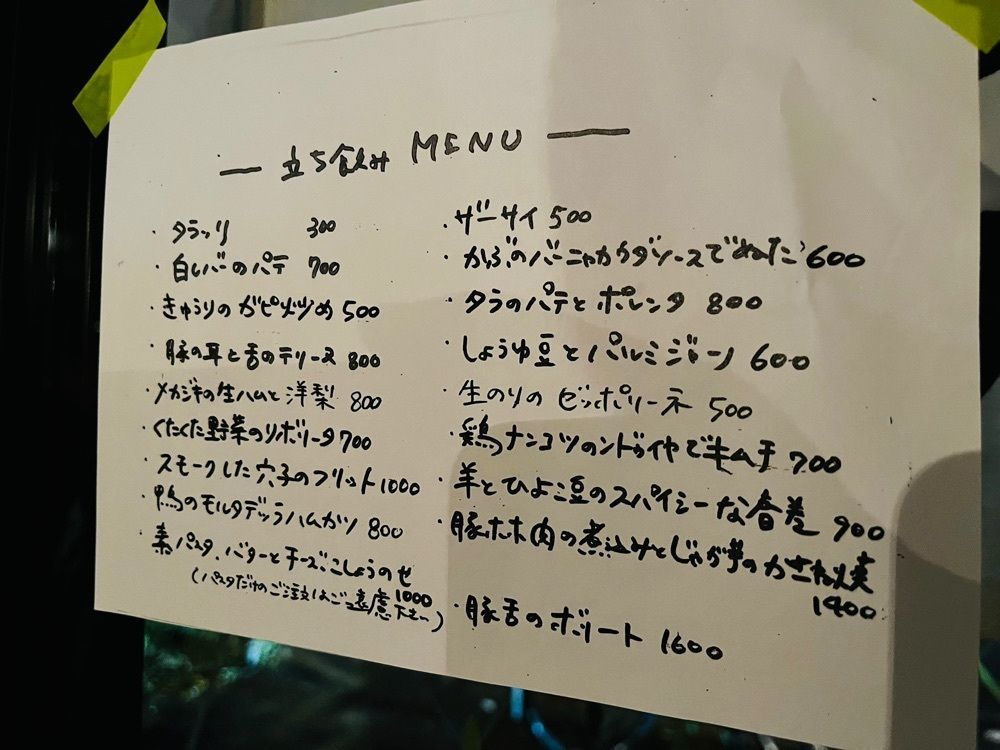 — 立ち飲み MENU —
・タラッリ 300
・白レバーのパテ 700
・きゅうりのガピ炒め 500
・豚の耳と舌のテリーヌ 800
・メカジキの生ハムと洋梨 800
・くたくた野菜のリボリータ 700
・スモークした穴子のフリット 1000
・鴨のモルタデッラハムカツ 800
・素パスタ、バターとチーズ、こしょうのせ
1000
(パスタだけのご注文はご遠慮下さい)
・ザーサイ 500
・かぶのバーニャカウダソースでぬた 600
・タラのパテとポレンタ 800
・しょうゆ豆とパルミジャーノ 600
・生のりのゼッポリーネ 500
・鶏ナンコツのンドゥイヤでキムチ 700
・羊とひよこ豆のスパイシーな春巻 900
・豚ホホ肉の煮込みとじゃが芋のかさね焼
1400
・豚舌のボリート 1600